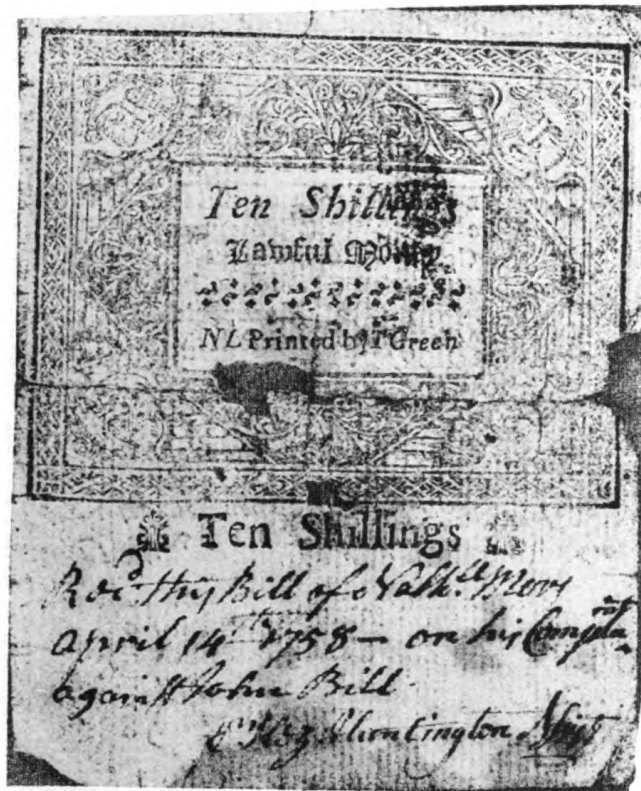 Ten Shillings
Lawful Money
NL Printed by T Green
Ten Shillings
Rec'd this Bill of Nath.ll
April 14th 1758 — on his Complnt
against John Bill
Huntington